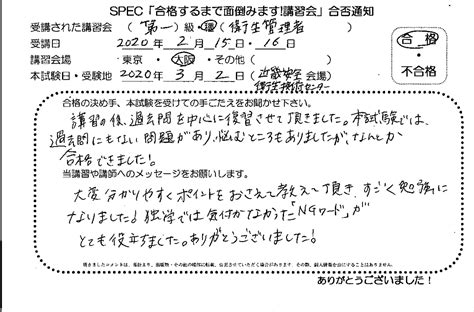 SPEC「合格するまで面倒みます!講習会」合否通知
受講された講習会 (第一)級・種(衛生管理者
受講日 2020年2月15・16日
講習会場 東京・大阪・その他( )
本試験日・受験地 2020年3月2日(近畿安全会場)
衛生技術センター
合格
・
不合格
合格の決め手、本試験を受けての手ごたえをお聞かせ下さい。
講習の後、過去問を中心に復習させて頂きました。本試験では、
過去問にもない問題があり、悩むところもありましたが、なんとか
合格できました!
当講習や講師へのメッセージをお願いします。
大変分かりやすくポイントをおさえて教えて頂き、すごく勉強に
なりました!独学では気付かなかった「NGワード」が
とても役立ちました。ありがとうございました!
ありがとうございました!